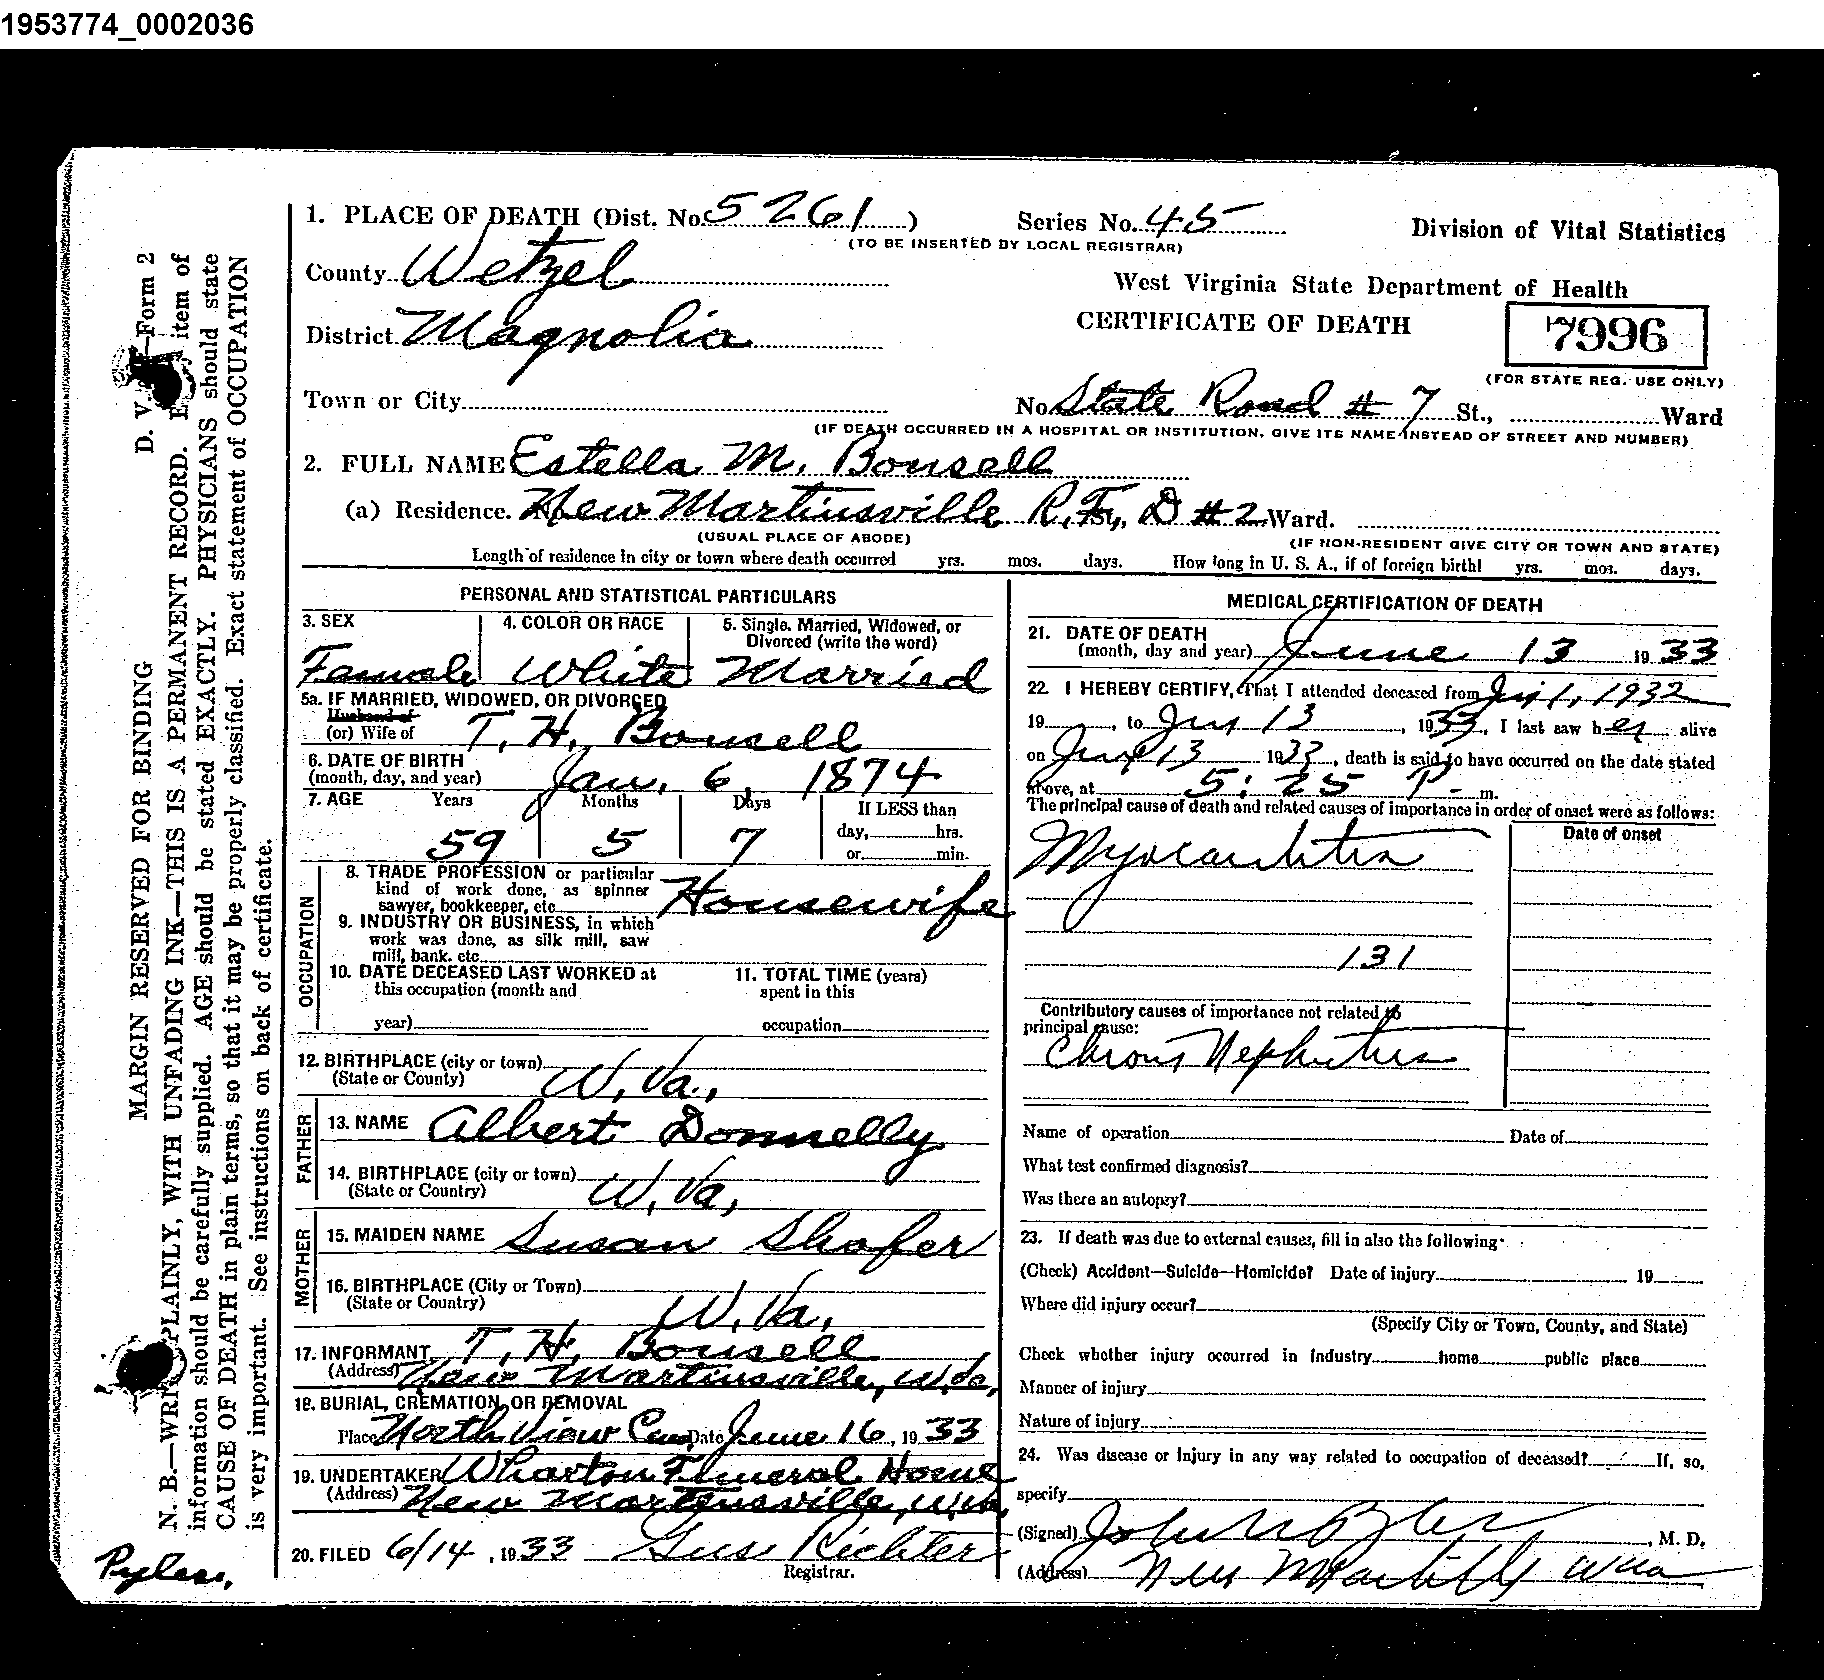 1953774_0002036
MARGIN RESERVED FOR BINDING D. V. —Form 2
N. B.—WRITE PLAINLY, WITH UNFADING INK—THIS IS A PERMANENT RECORD. Every item of
information should be carefully supplied. AGE should be stated EXACTLY. PHYSICIANS should state
CAUSE OF DEATH in plain terms, so that it may be properly classified. Exact statement of OCCUPATION
is very important. See instructions on back of certificate.
Pyles.
1. PLACE OF DEATH (Dist. No. 5261) Series No. 45 Division of Vital Statistics
(TO BE INSERTED BY LOCAL REGISTRAR)
County Wetzel West Virginia State Department of Health
District Magnolia CERTIFICATE OF DEATH 7996
(FOR STATE REG. USE ONLY)
Town or City No. State Road # 7 St., Ward
(IF DEATH OCCURRED IN A HOSPITAL OR INSTITUTION, GIVE ITS NAME INSTEAD OF STREET AND NUMBER)
2. FULL NAME Estella M. Bonsell
(a) Residence. No. New Martinsville R.F. St., D #2 Ward.
(USUAL PLACE OF ABODE) (IF NON-RESIDENT GIVE CITY OR TOWN AND STATE)
Length of residence in city or town where death occurred yrs. mos. days. How long in U. S. A., if of foreign birth! yrs. mos. days.
PERSONAL AND STATISTICAL PARTICULARS
3. SEX 4. COLOR OR RACE 5. Single, Married, Widowed, or
Divorced (write the word)
Female White Married
5a. IF MARRIED, WIDOWED, OR DIVORCED
Husband of
(or) Wife of T. H. Bonsell
6. DATE OF BIRTH
(month, day, and year) Jan. 6, 1874
7. AGE Years Months Days If LESS than
59 5 7 day, hrs.
or min.
OCCUPATION
8. TRADE PROFESSION or particular
kind of work done, as spinner
sawyer, bookkeeper, etc. Housewife
9. INDUSTRY OR BUSINESS, in which
work was done, as silk mill, saw
mill, bank, etc.
10. DATE DECEASED LAST WORKED at 11. TOTAL TIME (years)
this occupation (month and spent in this
year) occupation
12. BIRTHPLACE (city or town)
(State or County) W. Va.,
FATHER
13. NAME Albert Donnelly
14. BIRTHPLACE (city or town)
(State or Country) W. Va,
MOTHER
15. MAIDEN NAME Susan Shafer
16. BIRTHPLACE (City or Town)
(State or Country) W. Va,
17. INFORMANT T. H. Bonsell
(Address) New Martinsville, W.Va,
18. BURIAL, CREMATION, OR REMOVAL
Place North View Cem. Date June 16, 1933
19. UNDERTAKER Wharton Funeral Home
(Address) New Martinsville, W.Va,
20. FILED 6/14, 1933 Gus Richter
Registrar.
MEDICAL CERTIFICATION OF DEATH
21. DATE OF DEATH
(month, day and year) June 13 1933
22. I HEREBY CERTIFY, That I attended deceased from 1, 1932
19 , to 13 , 1933, I last saw her alive
on 13 1933, death is said to have occurred on the date stated
above, at 5:25 P. m.
The principal cause of death and related causes of importance in order of onset were as follows:
Date of onset
Myocarditis
131
Contributory causes of importance not related to
principal cause:
Chronic Nephritis
Name of operation Date of
What test confirmed diagnosis?
Was there an autopsy?
23. If death was due to external causes, fill in also the following:
(Check) Accident—Suicide—Homicide? Date of injury 19
Where did injury occur?
(Specify City or Town, County, and State)
Check whether injury occurred in industry home public place
Manner of injury
Nature of injury
24. Was disease or Injury in any way related to occupation of deceased? If, so,
specify
(Signed) John , M. D.
(Address) New Martinsville W Va